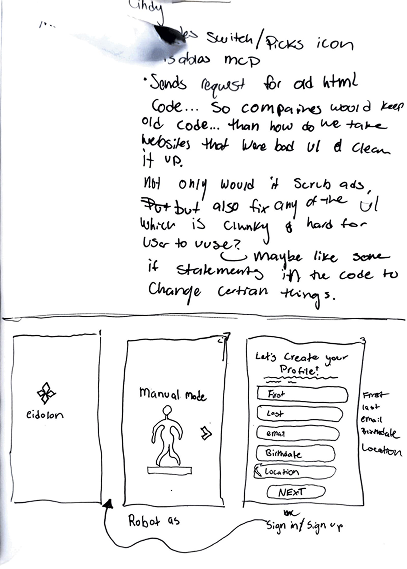 Cindy
switch/Picks icon
mcp
• Sends request for old html
code... so companies would keep
old code... than how do we take
websites that were bad UI & clean
it up.
not only would it scrub ads,
but but also fix any of the UI
which is clunky & hard for
user to uuse?
maybe like some
if statements in the code to
change certian things.
1
2
3
eidolon
manual mode
Let's create your
Profile!
First
Last
email
Birthdate
Location
NEXT
First
last
email
Birthdate
Location
Robot as
Sign in/Sign up